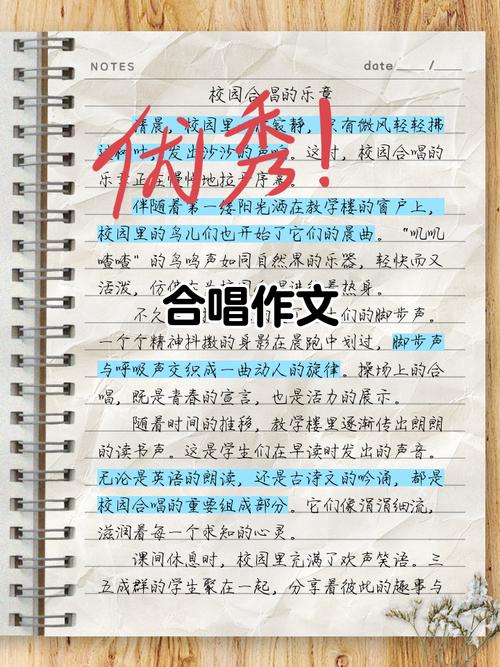 NOTES
date ___ / __
校园合唱的乐章
清晨，校园里一片寂静，只有微风轻轻拂
过树叶，发出沙沙的声响。这时，校园合唱的
乐章正在慢慢地拉开序幕。
优秀！
伴随着第一缕阳光洒在教学楼的窗户上，
校园里的鸟儿们也开始了它们的晨曲。“叽叽
喳喳”的鸟鸣声如同自然界的乐器，轻快而又
活泼，仿佛
热身。
合唱作文
不久
们的脚步声。
一个个精神抖擞的身影在晨跑中划过，脚步声
与呼吸声交织成一曲动人的旋律。操场上的合
唱，既是青春的宣言，也是活力的展示。
随着时间的推移，教学楼里逐渐传出朗朗
的读书声。这是学生们在早读时发出的声音。
无论是英语的朗读，还是古诗文的吟诵，都是
校园合唱的重要组成部分。它们像涓涓细流，
滋润着每一个求知的心灵。
课间休息时，校园里充满了欢声笑语。三
五成群的学生聚在一起，分享着彼此的趣事与